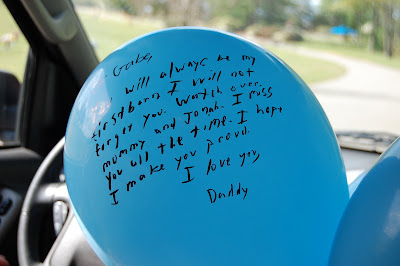 Gabe,
will always be my
firstborn I will not
forget you. Watch over
mommy and Jonah. I miss
you all the time. I hope
I make you proud.
I love you,
Daddy